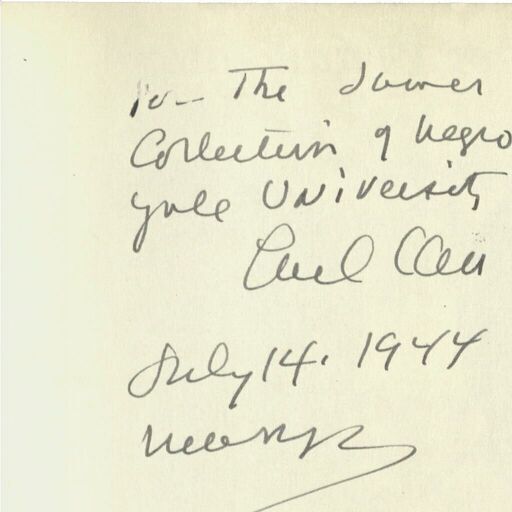 To— The James
Collection of Negro
Yale University
Earl Con
July 14, 1944
New York